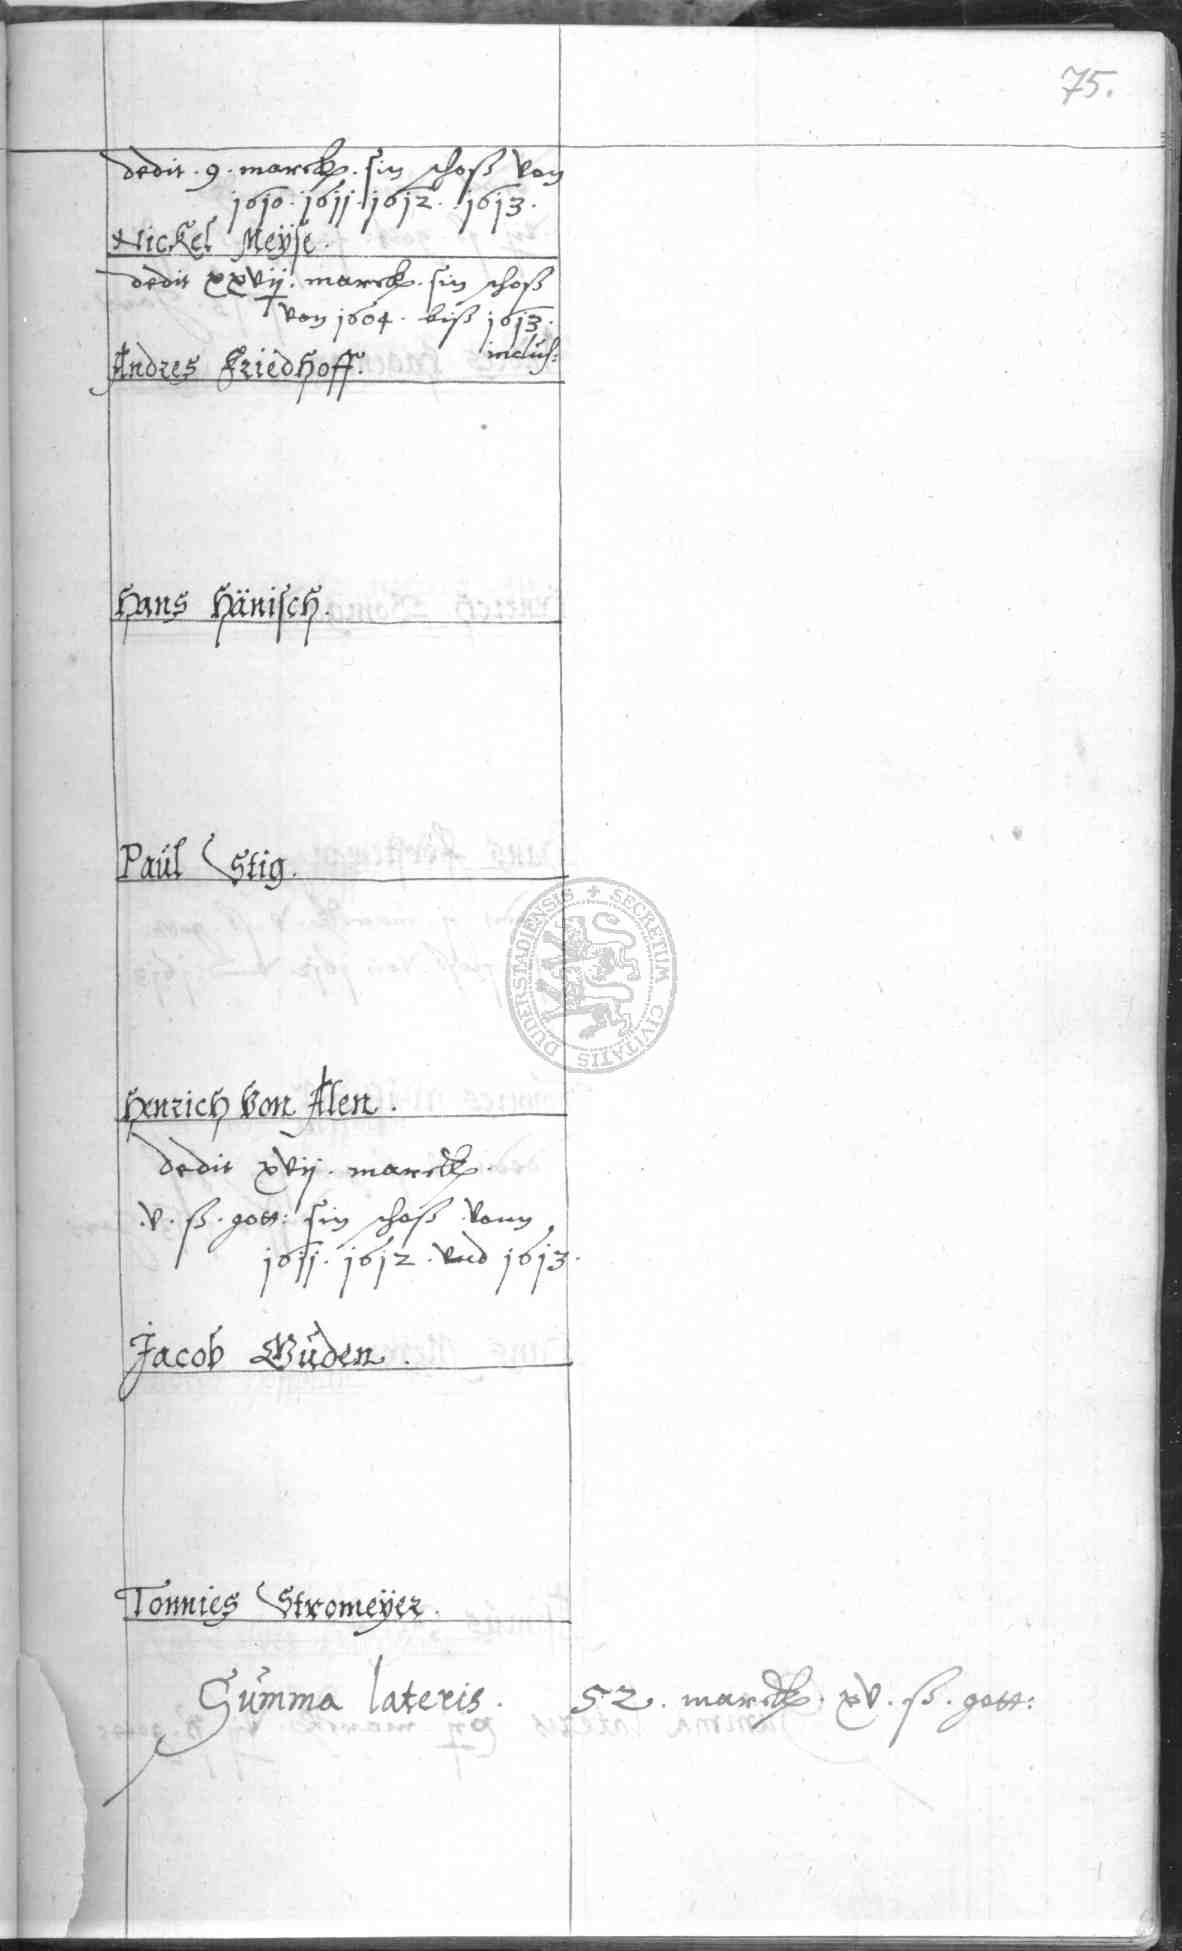 75.
dedit . 9 . marck . sin schoß von
1610 . 1611 . 1612 . 1613 .
Nickel Meÿse .
dedit xxvij . marck . sin schoß
von 1604 . biß 1613 .
inclus:
Andres Friedhoff .
Hans Hänisch .
Paul Stig .
DUDERSTADIENSIS + SECRETUM CIVITATIS
Henrich Von Alen .
dedit xvij . marck .
. v . ß . gott: sin schoß vonn
1611 . 1612 . vnd 1613 .
Jacob Wüden .
Tonnies Stromeÿer .
Summa lateris . 52 . marck . xv . ß . gott: